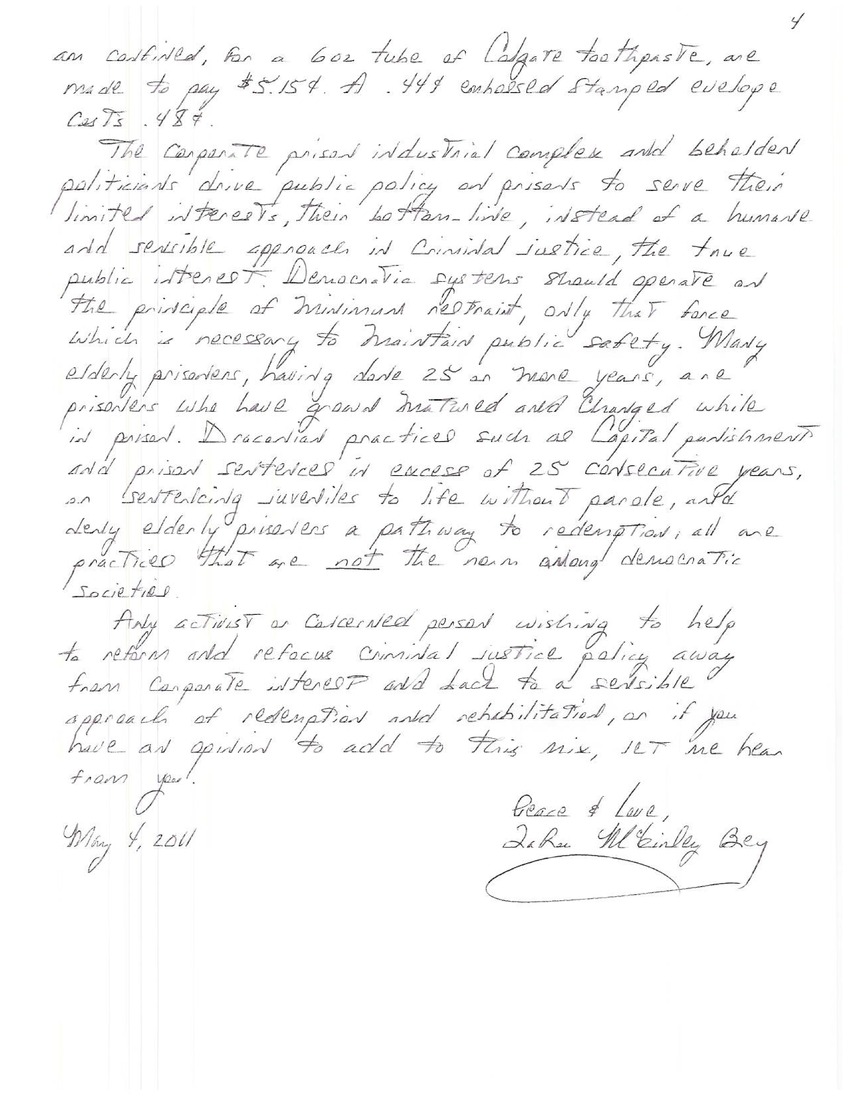 4
am confined, for a 6oz tube of Colgate toothpaste, are
made to pay $5.15¢. A .44¢ embossed stamped evelope
costs .48¢.
The Corporate prison industrial complex and beholden
politicians drive public policy on prisons to serve their
limited interests, their bottom-line, instead of a humane
and sensible approach in Criminal Justice, the true
public interest. Democratic systems should operate on
the principle of minimum restraint, only that force
which is necessary to maintain public safety. Many
elderly prisoners, having done 25 or more years, are
prisoners who have grown matured and changed while
in prison. Draconian practices such as Capital punishment
and prison sentences in excess of 25 consecutive years,
or sentencing juveniles to life without parole, and
deny elderly prisoners a pathway to redemption; all are
practices that are not the norm among democratic
societies.
Any activist or concerned person wishing to help
to reform and refocus criminal justice policy away
from corporate interest and back to a sensible
approach of redemption and rehabilitation, or if you
have an opinion to add to this mix, let me hear
from you.
Peace & Love,
May 4, 2011
McKinley Bey